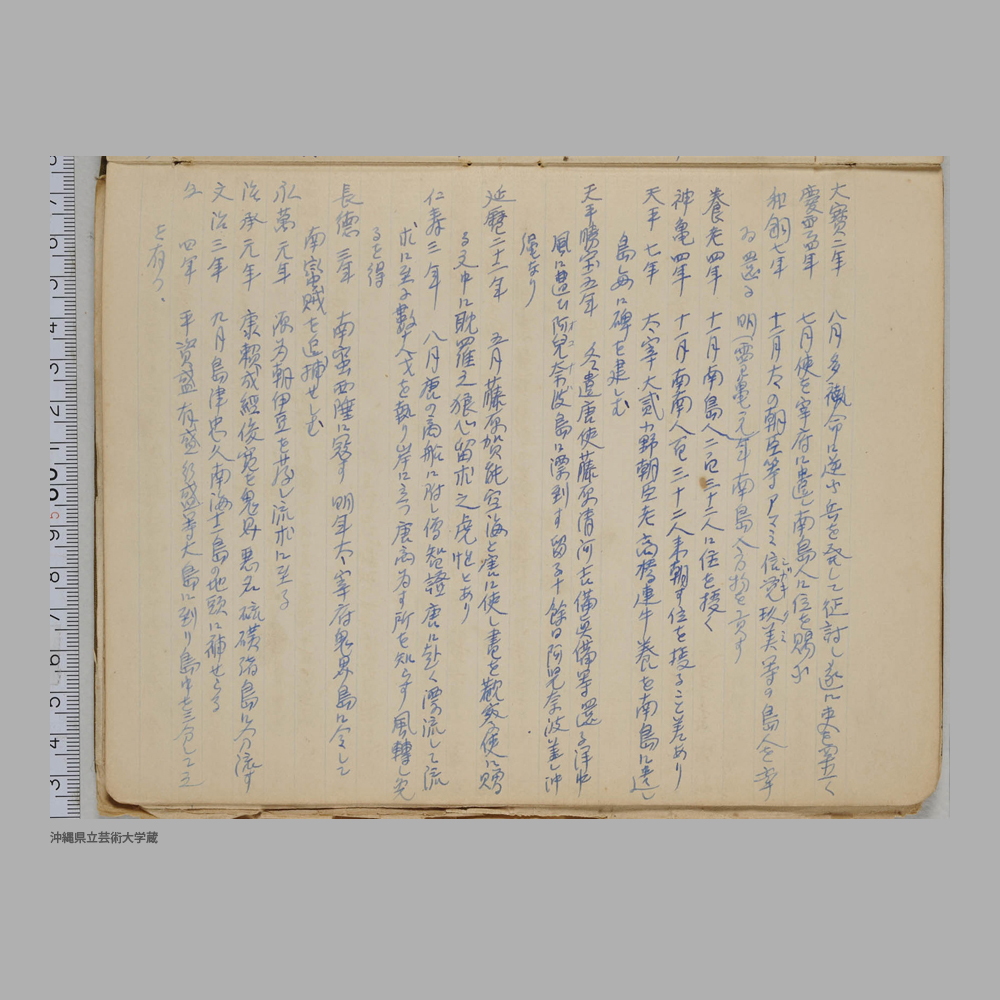 大寶二年 八月多褹命に逆ふ兵を発して征討し遂に吏を置く
慶雲四年 七月使を宰府に遣し南島人に位を賜ふ
和銅七年 十二月太の朝臣等のアマミ信覚玖美等の島人を率
ゐ還る 明(霊亀元年南島人方物を貢す
養老四年 十一月南島人二百三十二人に位を授く
神亀四年 十一月南南人百三十二人来朝す位を授ること差あり
天平七年 太宰大貳小野朝臣老高橋連牛養を南島に遣し
島毎に碑を建しむ
天平勝宝五年 冬遣唐使藤原清河吉備真備等還る洋中
風に遭ひ阿児奈波島に漂到す留る十餘日阿児奈波蓋し沖
縄なり
延暦二十三年 五月藤原賀能空海と唐に使し書を観察使に贈
る文中に耽羅之狼心留求之虎性とあり
仁寿三年 八月唐の商船に附し僧智證唐に赴く漂流して流
求に至る数十人戈を執り岸に立つ唐商為す所を知らず風轉し免
るを得
長徳三年 南蛮西陲に寇す 明年太宰府鬼界島に令して
南蛮賊を追捕せしむ
永萬元年 源為朝伊豆を発し流求に至る
治承元年 康頼成經俊寛を鬼界悪名硫磺島に分流す
文治三年 九月島津忠久南海十二島の地頭に補せらる
仝 四年 平資盛有盛行盛等大島に到り島中を三分して之
を有つ、
沖縄県立芸術大学蔵